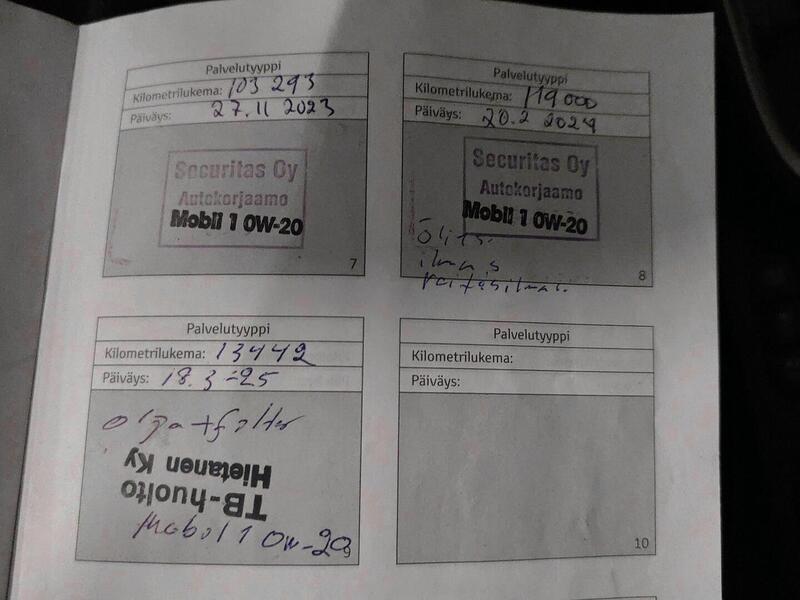 Palvelutyyppi
Kilometrilukema: 103 293
Päiväys: 27.11 2023
Securitas Oy
Autokorjaamo
Mobil 1 0W-20
7
Palvelutyyppi
Kilometrilukema: 119 000
Päiväys: 20.2 2024
Securitas Oy
Autokorjaamo
Mobil 1 0W-20
8
Palvelutyyppi
Kilometrilukema: 13442
Päiväys: 18.3-25
TB-huolto
Hietanen Ky
Mobil 1 0W-20
9
Palvelutyyppi
Kilometrilukema:
Päiväys:
10